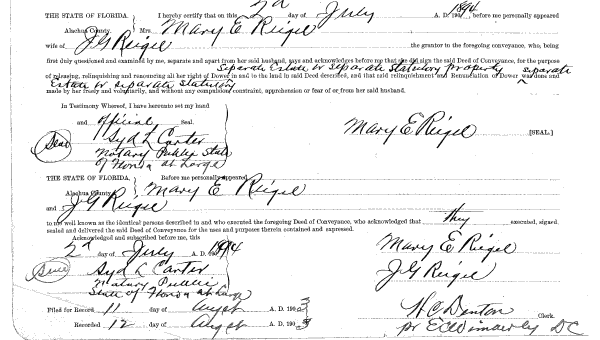 2d July 1894
THE STATE OF FLORIDA, I hereby certify that on this day of A. D. 190 , before me personally appeared
Alachua County. Mrs. Mary E Reigel
wife of J G Reigel the grantor in the foregoing conveyance, who, being
first duly questioned and examined by me, separate and apart from her said husband, says and acknowledges before me that she did sign the said Deed of Conveyance, for the purpose
Separate Estate or Separate Statutory Property separate
of releasing, relinquishing and renouncing all her right of Dower in and to the land in said Deed described, and that said relinquishment and Renunciation of Dower was done and
Estate or separate statutory
made by her freely and voluntarily, and without any compulsion, constraint, apprehension or fear of or from her said husband.
In Testimony Whereof, I have hereunto set my hand
and official Seal.
Seal Syd L Carter Mary E Reigel [SEAL.]
Notary Public State
of Florida at Large
THE STATE OF FLORIDA. Before me personally appeared
Alachua County. Mary E Reigel
and J G Reigel
to me well known as the identical persons described in and who executed the foregoing Deed of Conveyance, who acknowledged that they executed, signed,
sealed and delivered the said Deed of Conveyance for the uses and purposes therein contained and expressed.
Acknowledged and subscribed before me, this
2d day of July 1894 Mary E Reigel
Seal Syd L Carter J G Reigel
Notary Public
State of Florida at Large
Filed for Record 11 day of August A. D. 1903 H C Denton Clerk.
Recorded 12 day of August A. D. 1903 pr E C Wimberly DC